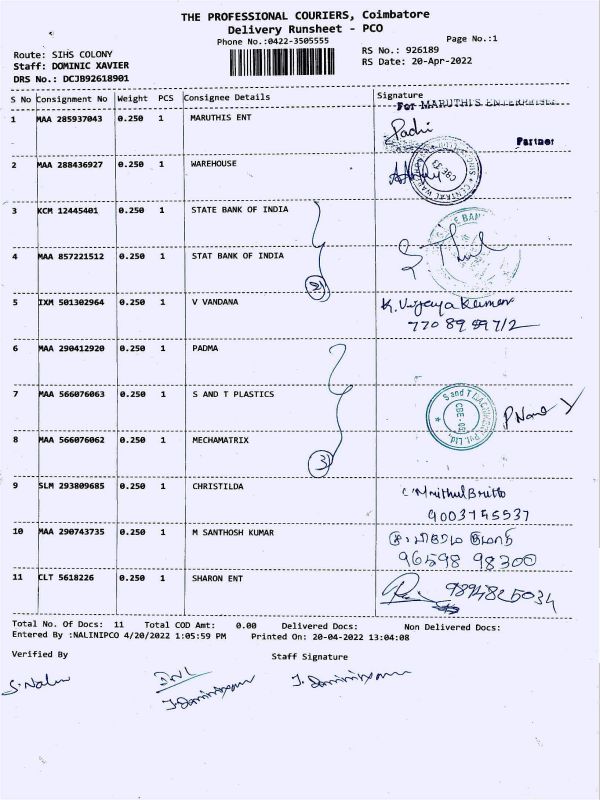 THE PROFESSIONAL COURIERS, Coimbatore
Delivery Runsheet - PCO
Phone No.:0422-3505555
Page No.:1
Route: SIHS COLONY
RS No.: 926189
Staff: DOMINIC XAVIER
RS Date: 20-Apr-2022
DRS No.: DCJB92618901
S No Consignment No Weight PCS Consignee Details Signature
For MARUTHIS ENTERPRISES
1 MAA 285937043 0.250 1 MARUTHIS ENT
Padhi
Partner
2 MAA 288436927 0.250 1 WAREHOUSE
CBE-33
3 KCM 12445401 0.250 1 STATE BANK OF INDIA
4 MAA 857221512 0.250 1 STAT BANK OF INDIA
2
5 IXM 501302964 0.250 1 V VANDANA K. Vijayakumar
6 MAA 290412920 0.250 1 PADMA
7 MAA 566076063 0.250 1 S AND T PLASTICS
S and T MACHINERY Pvt. Ltd.
8 MAA 566076062 0.250 1 MECHAMATRIX
3
9 SLM 293809685 0.250 1 CHRISTILDA
C Mrithul Britto
9003745537
10 MAA 290743735 0.250 1 M SANTHOSH KUMAR
96598 98300
11 CLT 5618226 0.250 1 SHARON ENT
9894825034
Total No. Of Docs: 11 Total COD Amt: 0.00 Delivered Docs: Non Delivered Docs:
Entered By :NALINIPCO 4/20/2022 1:05:59 PM Printed On: 20-04-2022 13:04:08
Verified By Staff Signature